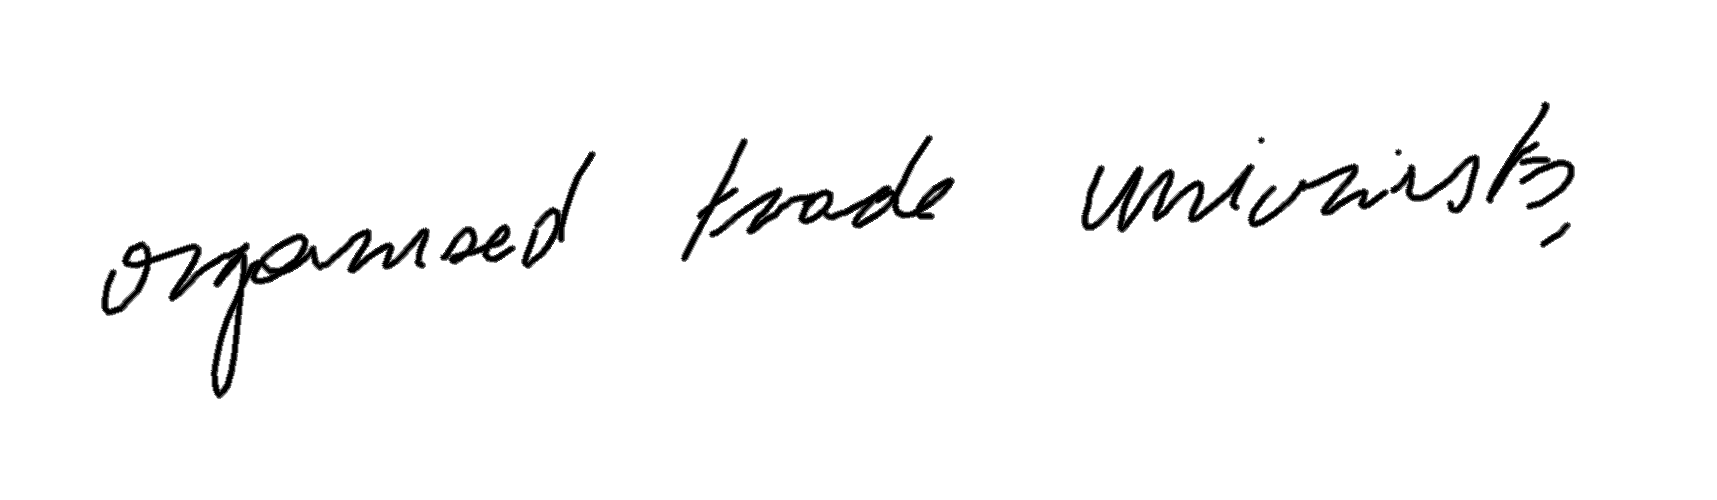 organised trade unionists,